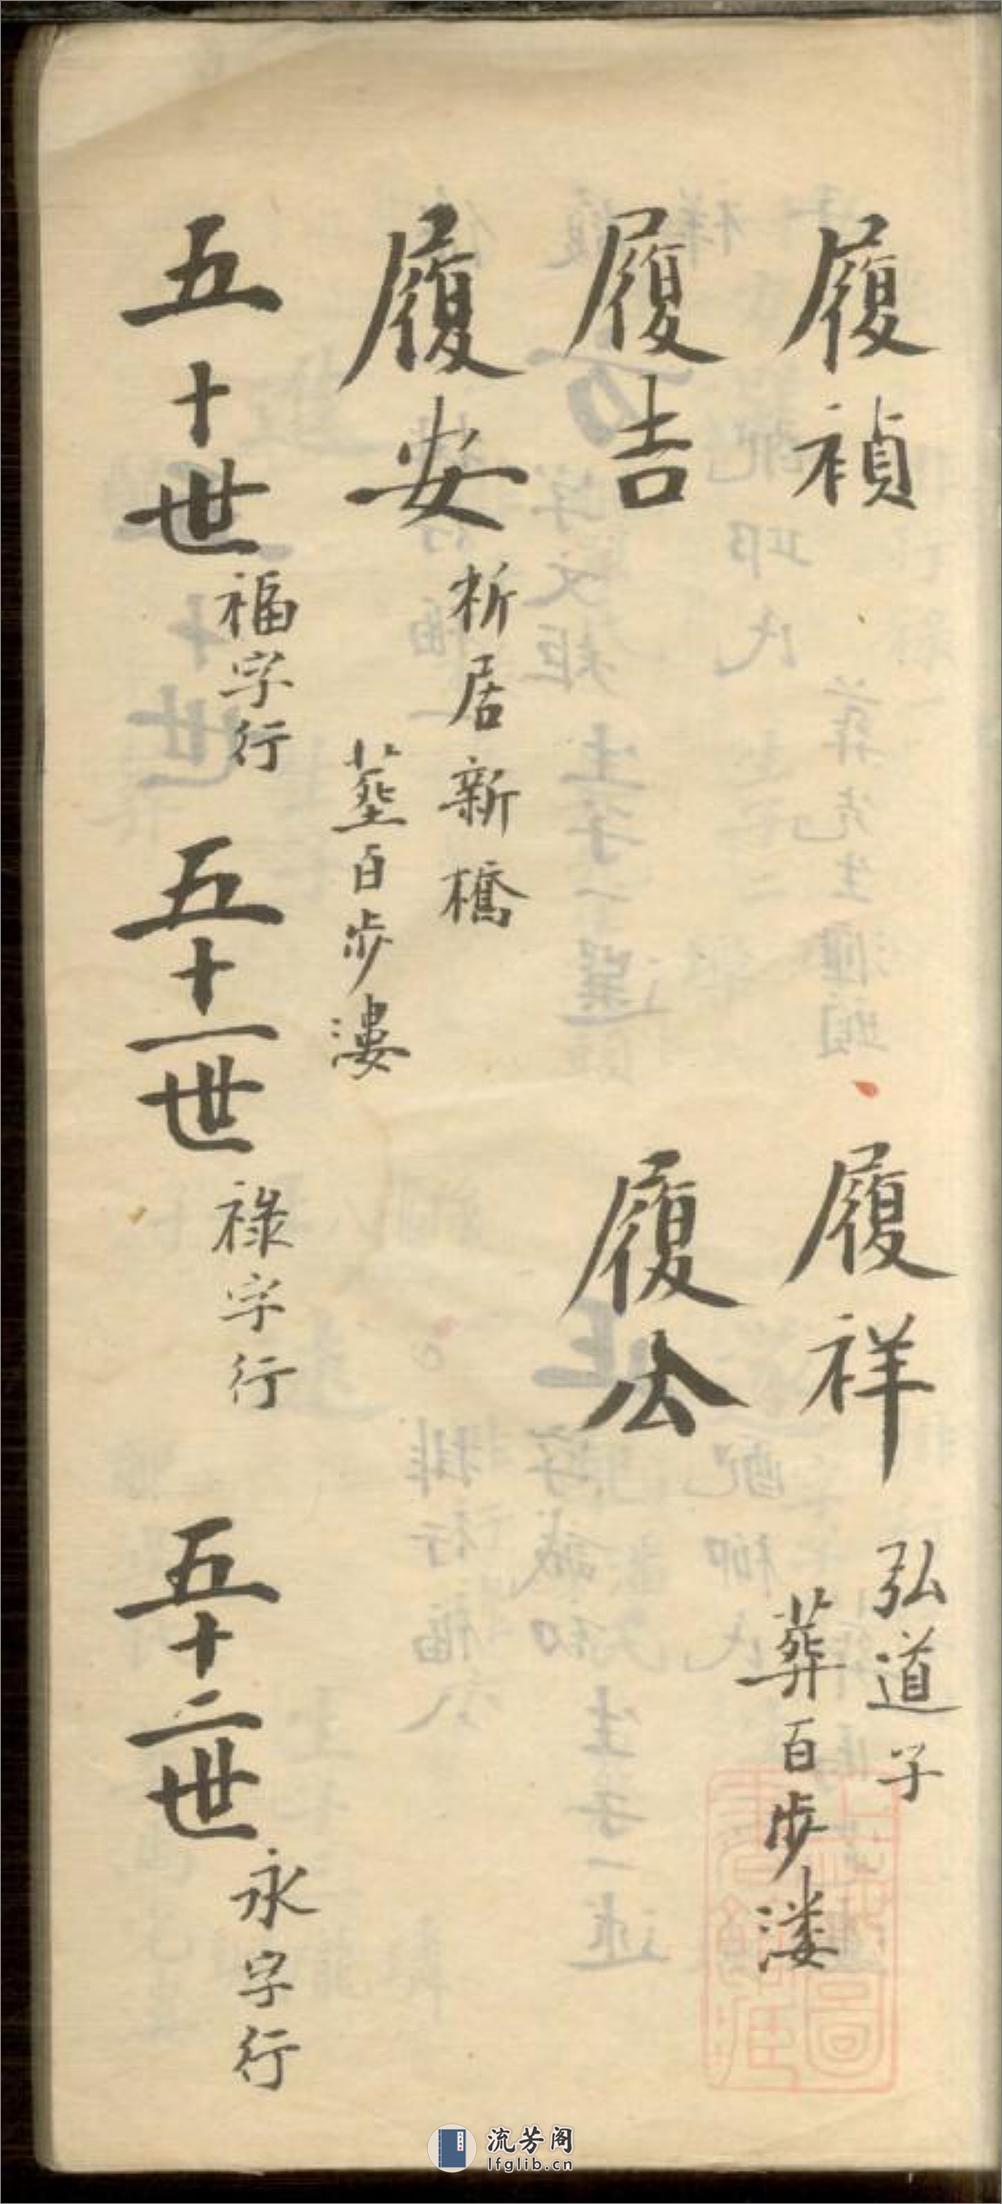 履禎　履祥
弘道子
葬百步漊
履吉　履公
履安
析居新橋
塟百步漊
五十世 福字行 五十一世 祿字行 五十二世 永字行
流芳阁
lfglib.cn